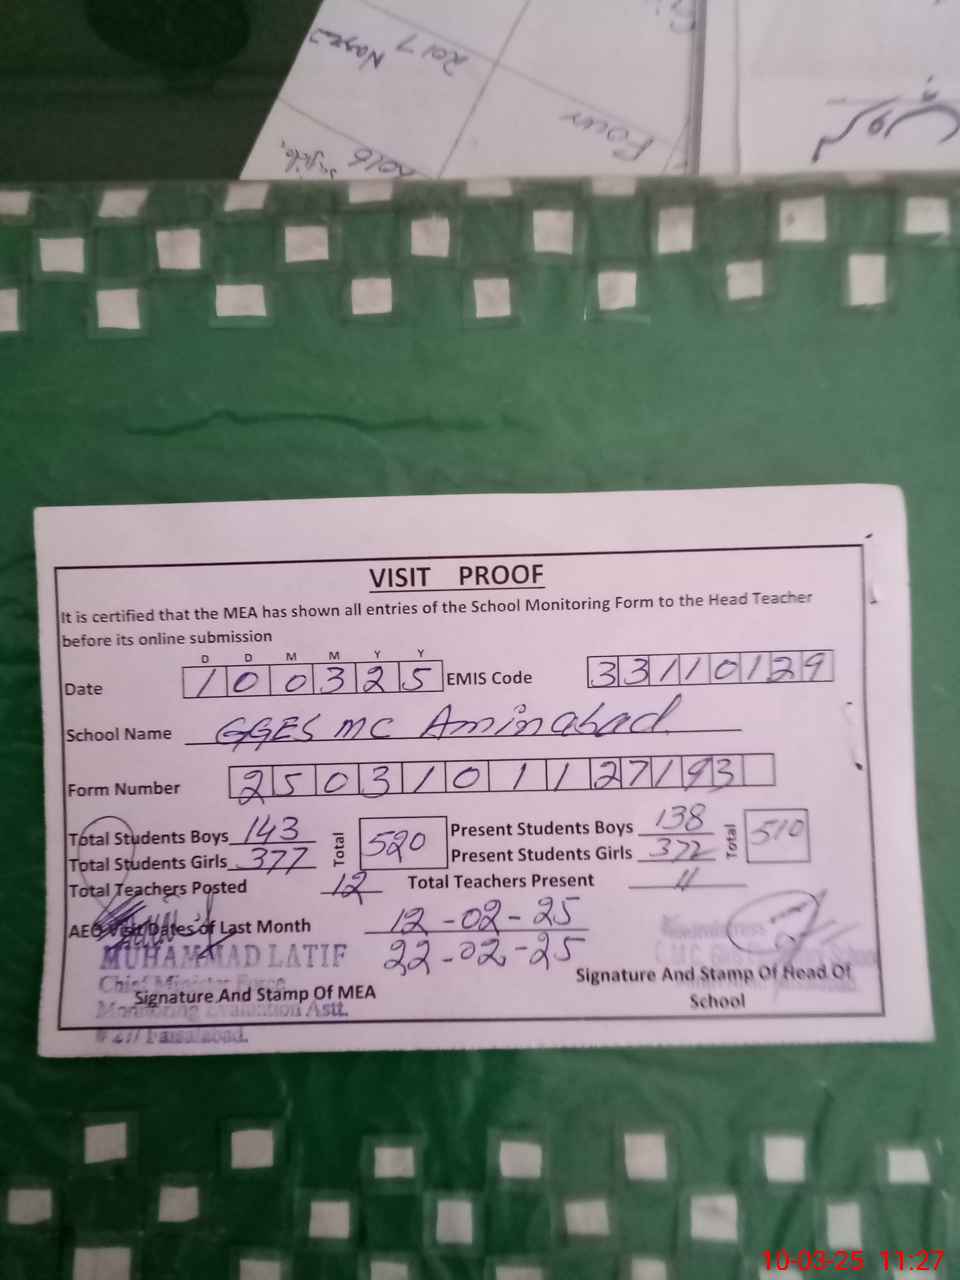 2017 Nazra
Four
VISIT PROOF
It is certified that the MEA has shown all entries of the School Monitoring Form to the Head Teacher
before its online submission
D D M M Y Y
Date 1 0 0 3 2 5 EMIS Code 3 3 1 1 0 1 2 9
School Name GGES MC Aminabad
Form Number 2 5 0 3 1 0 1 1 2 7 1 9 3
Total Students Boys 143 Total 520 Present Students Boys 138 Total 510
Total Students Girls 377 Present Students Girls 372
Total Teachers Posted 12 Total Teachers Present 11
AEO Visit Dates of Last Month 12-02-25
22-02-25
MUHAMMAD LATIF
Chief Minister Force
Monitoring Evaluation Astt.
# 27/ Faisalabad.
Signature And Stamp Of MEA
Signature And Stamp Of Head Of
School
10-03-25 11:27